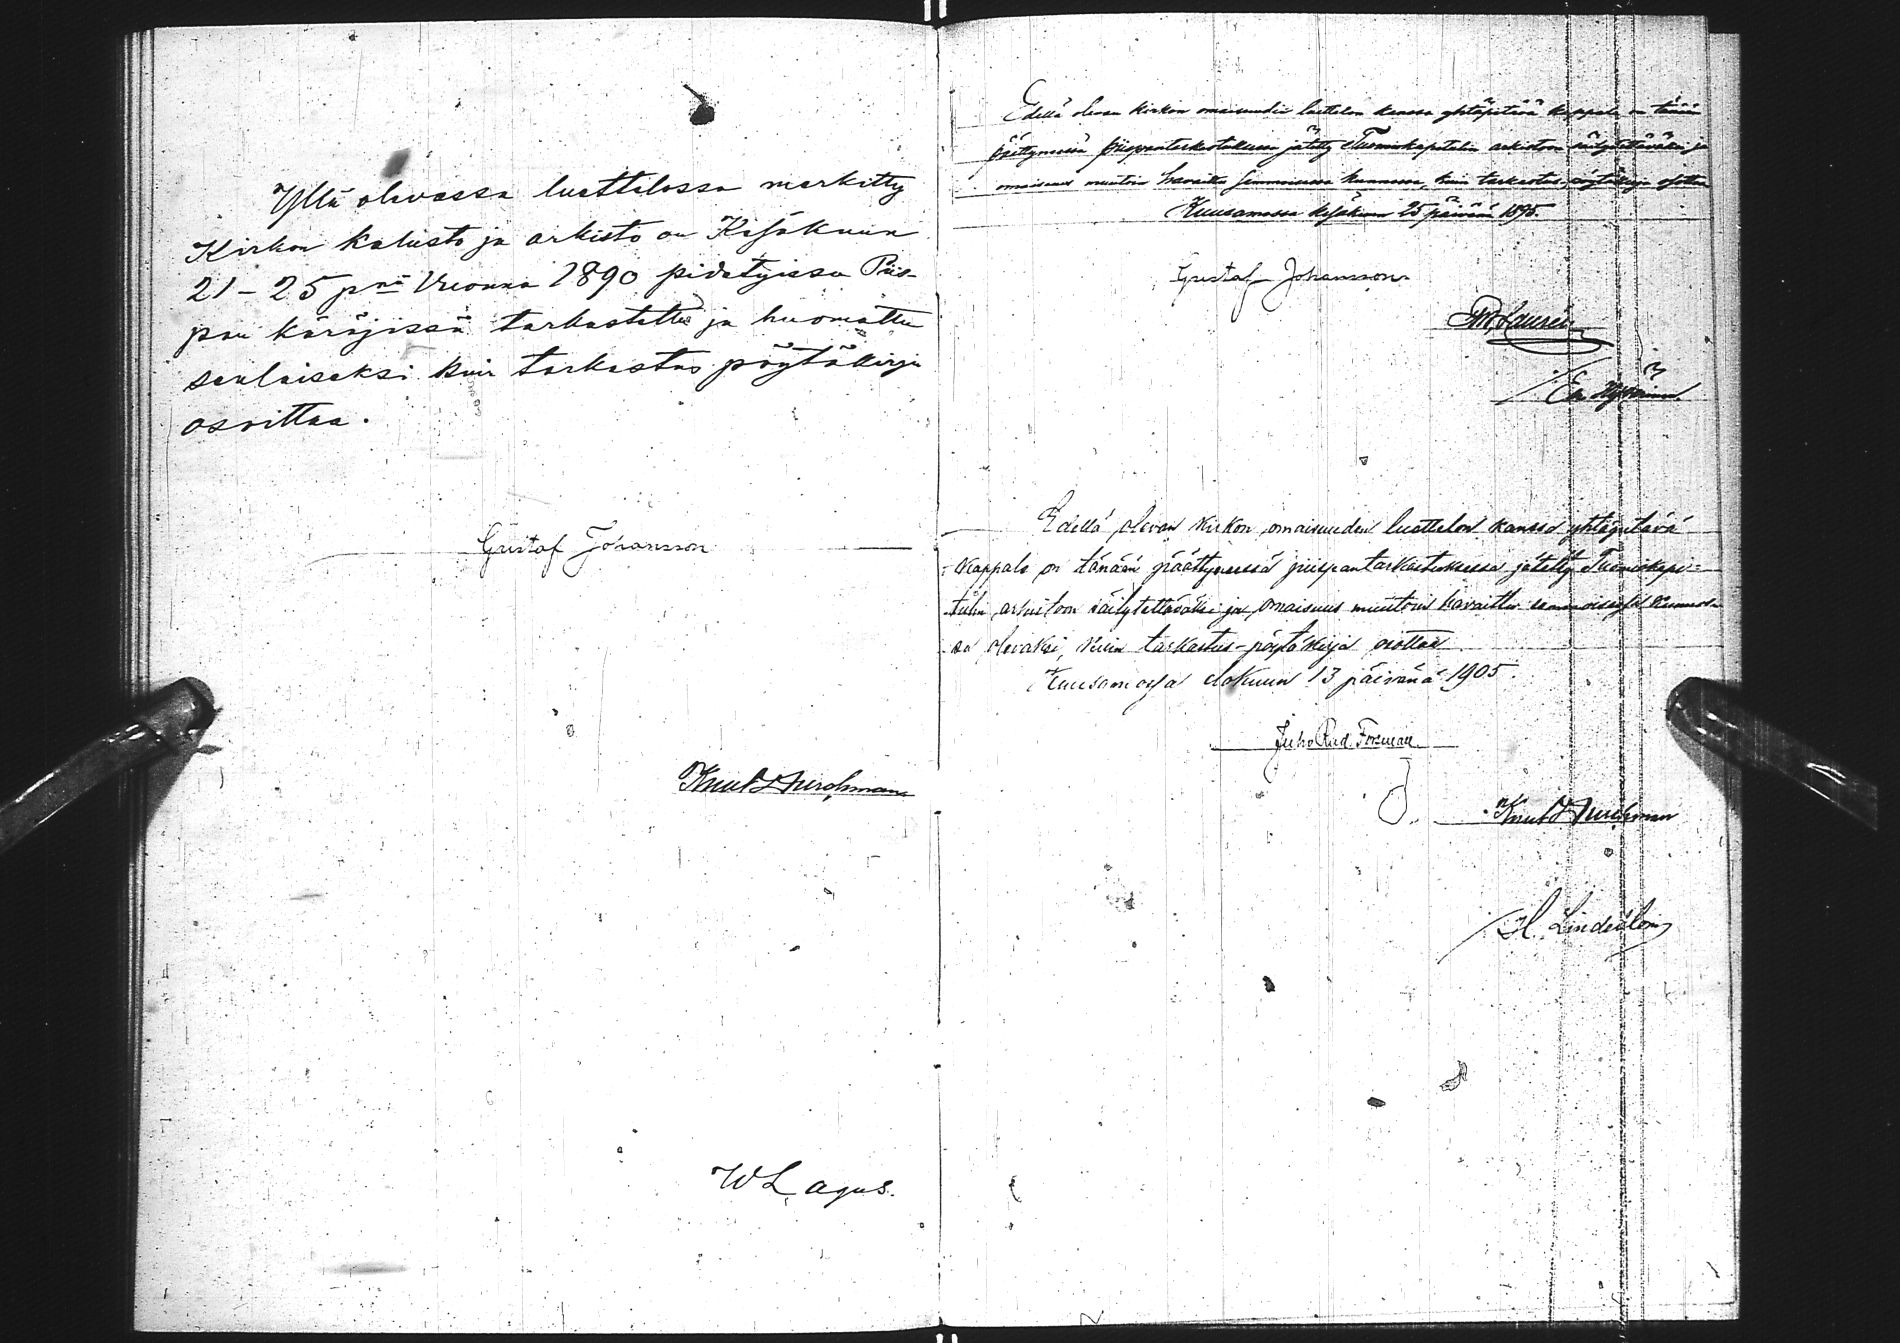 Yllä olevassa luettelossa merkitty
Kirkon kalusto ja arkisto on Kesäkuun
21-25 pnä Vuonna 1890 pidetyissä Piis-
pan käräjissä tarkastettu ja huomattu
senlaiseksi kuin tarkastus pöytäkirja
osoittaa.
Gustaf Johansson
W Lagus.
Edellä olevan kirkon omaisuuden luettelon kanssa yhtäpitävä kappale on tänään
päättyneessä piispantarkastuksessa jätetty Tuomiokapitulin arkistoon säilytettäväksi ja
omaisuus muutoin havaittu semmoisessa kunnossa, kuin tarkastus-pöytäkirja osottaa
Kuusamossa kesäkuun 25 päivänä 1895.
Gustaf Johansson
Edellä olevan kirkon omaisuuden luettelon kanssa yhtäpitävä
kappale on tänään päättyneessä piispantarkastuksessa jätetty Tuomiokapi=
tulin arkistoon säilytettäväksi ja omaisuus muutoin havaittu semmoisessa kunnos-
sa olevaksi, kuin tarkastus-pöytäkirja osottaa
Kuusamossa elokuun 13 päivänä 1905.
Juho Rud. Forsman